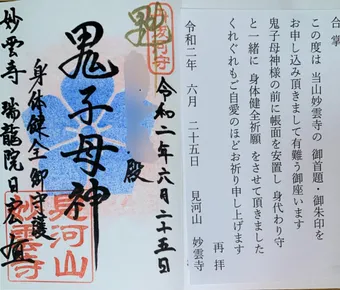 合掌
この度は 当山妙雲寺の 御首題・御朱印を
お申し込み頂きまして有難う御座います
鬼子母神様の前に帳面を安置し 身代わり守
と一緒に 身体健全祈願 をさせて頂きました
くれぐれもご自愛のほどお祈り申し上げます
再拝
令和二年 六月 二十五日 見河山 妙雲寺
令和二年六月二十五日
殿
鬼子母神
身体健全御守護
妙雲寺 瑞龍院日
見河山
妙雲寺